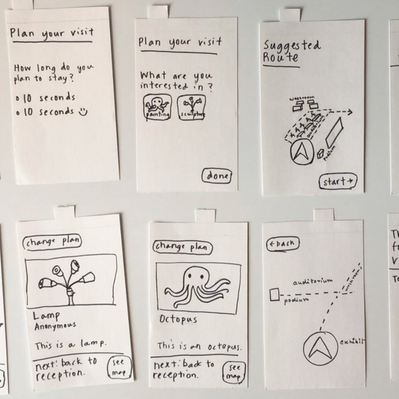 Plan your visit
How long do you
plan to stay?
10 seconds
10 seconds
Plan your visit
What are you
interested in?
painting
sculpture
done
Suggested
Route
start →
change plan
Lamp
Anonymous
This is a lamp.
next: back to
reception.
see
map
change plan
Octopus
This is an octopus.
next: back to
reception.
see
map
← back
auditorium
podium
exhibit